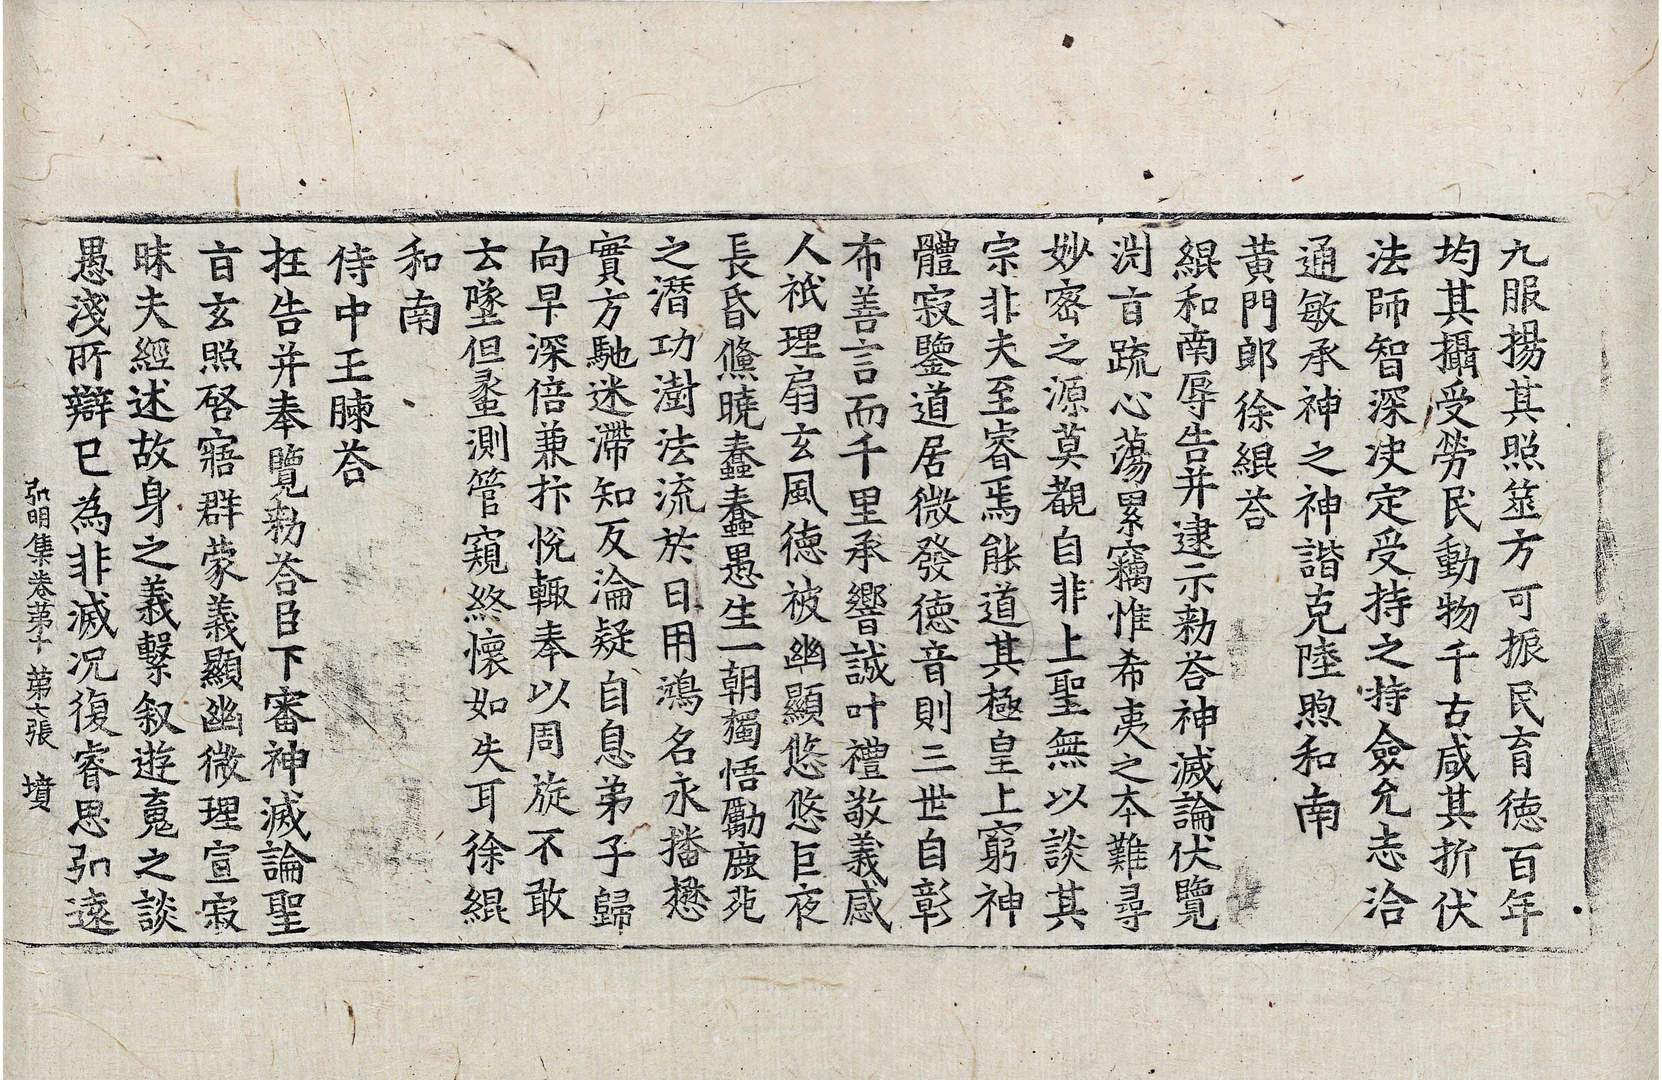 九服揚其照筮方可振民育德百年
均其攝受勞民動物千古咸其折伏
法師智深決定受持之持僉允志洽
通敏承神之神諧克陸煦和南
黄門郎徐緄荅
緄和南辱告并逮示勑荅神滅論伏覽
渕旨疏心蕩累竊惟希夷之本難尋
妙宻之源莫覩自非上聖無以談其
宗非夫至睿焉能道其極皇上窮神
體寂鑒道居微發德音則三世自彰
布善言而千里承響誠叶禮敬義感
人祇理扇玄風德被幽顯悠悠巨夜
長昏儵曉蠢蠢愚生一朝獨悟勵鹿苑
之潛功澍法流於日用鴻名永播懋
實方馳迷滯知反淪疑自息弟子歸
向早深倍兼抃悅輙奉以周旋不敢
去墜但蠡測管窺終懷如失耳徐緄
和南
侍中王暕荅
抂告并奉覽勑荅臣下審神滅論聖
旨玄照啓寤群蒙義顯幽微理宣寂
昧夫經述故身之義繫叙遊䰟之談
愚淺所辯已為非滅况復睿思弘遠
弘明集卷苐十 第六張 墳